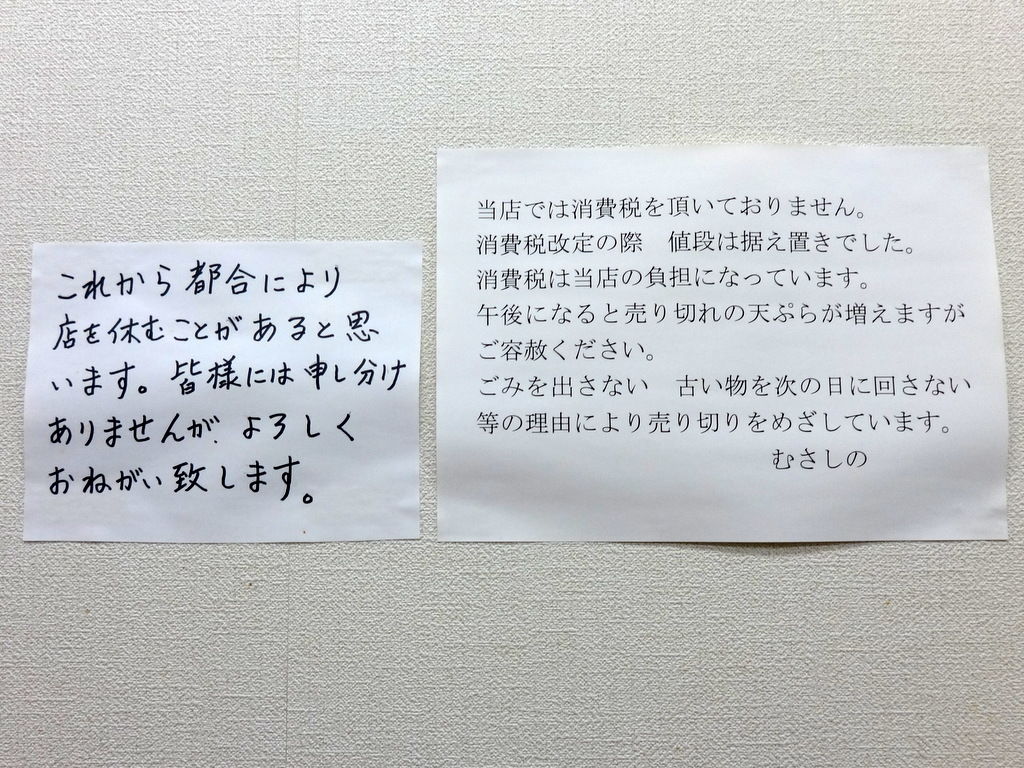 これから都合により
店を休むことがあると思
います。皆様には申し分け
ありませんが、よろしく
おねがい致します。
当店では消費税を頂いておりません。
消費税改定の際　値段は据え置きでした。
消費税は当店の負担になっています。
午後になると売り切れの天ぷらが増えますが
ご容赦ください。
ごみを出さない　古い物を次の日に回さない
等の理由により売り切りをめざしています。
むさしの